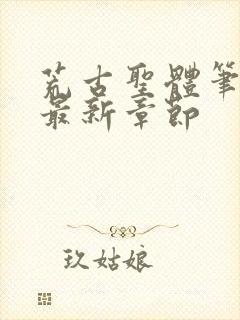 荒古聖體筆
最新章節
玖姑娘